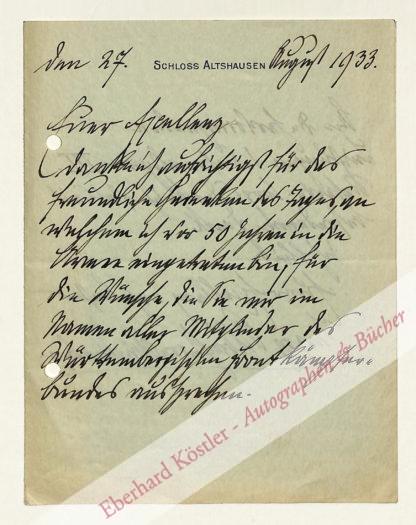 den 27. SCHLOSS ALTSHAUSEN August 1933.
Euer Exzellenz
danke ich aufrichtigst für das
freundliche Gedenken des Tages an
welchem ich vor 50 Jahren in die
Armee eingetreten bin, für
die Wünsche, die Sie mir im
Namen aller Mitglieder des
Württembergischen Frontkämpfer-
bundes aussprechen.
Eberhard Köstler - Autographen & Bücher